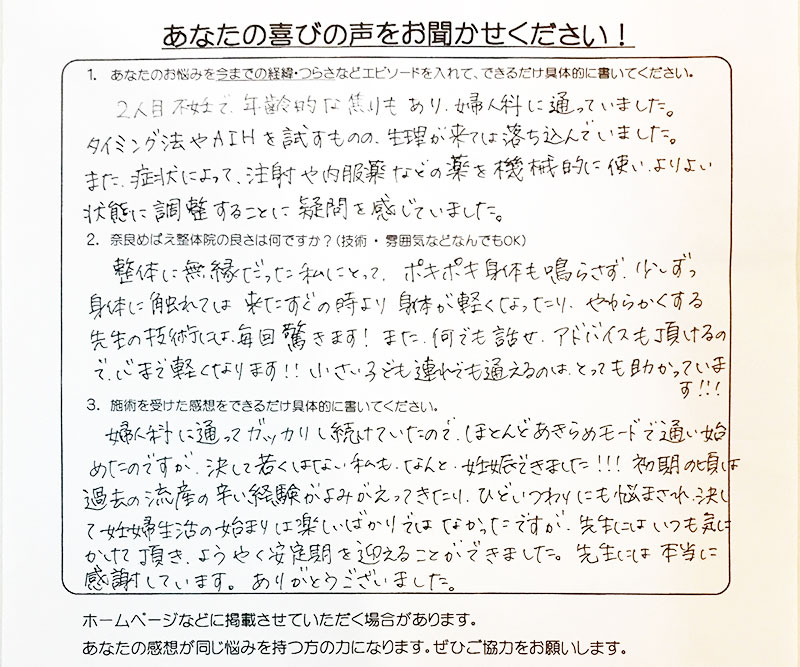 あなたの喜びの声をお聞かせください！
1. あなたのお悩みを今までの経緯・つらさなどエピソードを入れて、できるだけ具体的に書いてください。
2人目不妊で、年齢的な焦りもあり、婦人科に通っていました。
タイミング法やAIHを試すものの、生理が来ては落ち込んでいました。
また、症状によって、注射や内服薬などの薬を機械的に使い、よりよい
状態に調整することに疑問を感じていました。
2. 奈良めばえ整体院の良さは何ですか？(技術・雰囲気などなんでもOK)
整体に無縁だった私にとって、ポキポキ身体も鳴らさず、少しずつ
身体に触れては来たすぐの時より身体が軽くなったり、やわらかくする
先生の技術には、毎回驚きます！また、何でも話せ、アドバイスも頂けるの
で、心まで軽くなります!!小さい子ども連れでも通えるのは、とっても助かっていま
す!!!
3. 施術を受けた感想をできるだけ具体的に書いてください。
婦人科に通ってガッカリし続けていたので、ほとんどあきらめモードで通い始
めたのですが、決して若くはない私も、なんと、妊娠できました!!!初期の頃は
過去の流産の辛い経験がよみがえってきたり、ひどいつわりにも悩まされ、決し
て妊婦生活の始まりは楽しいばかりではなかったですが、先生にはいつも気に
かけて頂き、ようやく安定期を迎えることができました。先生には本当に
感謝しています。ありがとうございました。
ホームページなどに掲載させていただく場合があります。
あなたの感想が同じ悩みを持つ方の力になります。ぜひご協力をお願いします。